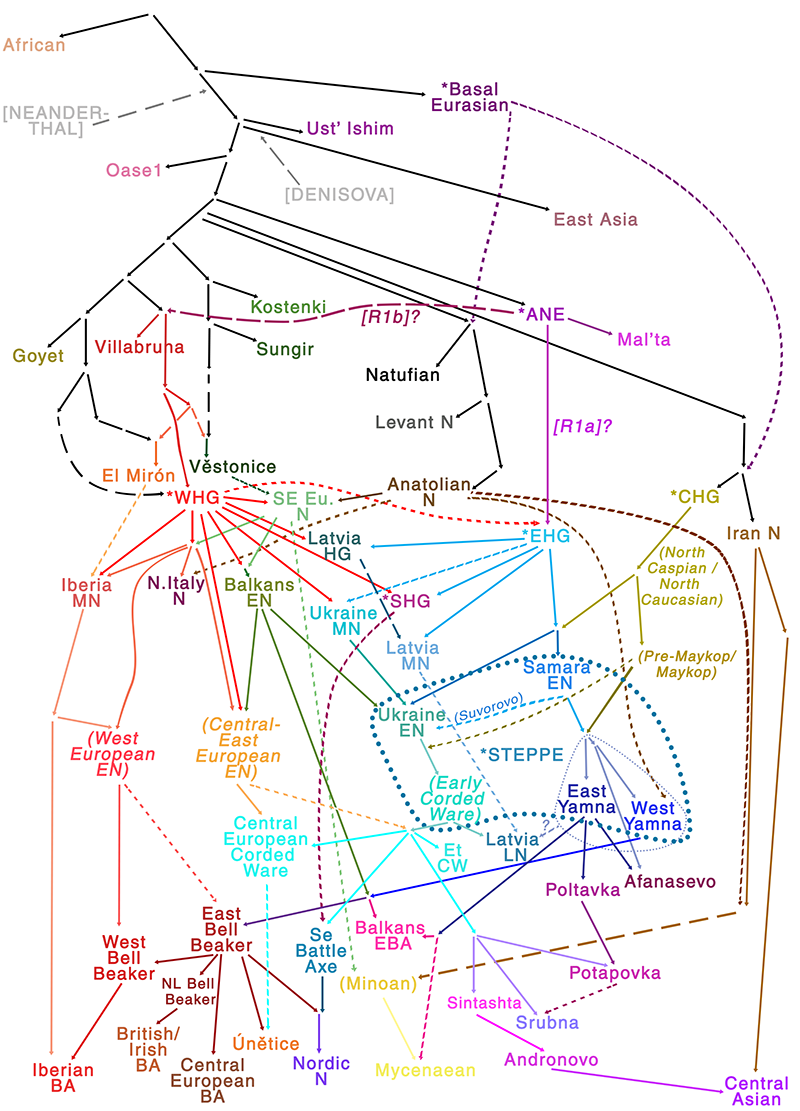 African
*Basal
Eurasian
[NEANDER-
THAL]
Ust' Ishim
Oase1
[DENISOVA]
East Asia
Kostenki
[R1b]?
*ANE
Goyet
Villabruna
Sungir
Mal'ta
Natufian
Levant N
[R1a]?
El Mirón
Věstonice
*WHG
SE Eu.
N
Anatolian
N
*CHG
Iran N
Latvia
HG
*EHG
(North
Caspian /
North
Caucasian)
Iberia
MN
N.Italy
N
Balkans
EN
Ukraine
MN
*SHG
Latvia
MN
Samara
EN
(Pre-Maykop/
Maykop)
(West
European
EN)
(Central-
East
European
EN)
Ukraine
EN
(Suvorovo)
*STEPPE
(Early
Corded
Ware)
East
Yamna
West
Yamna
Central
European
Corded
Ware
Et
CW
Latvia
LN
?
Poltavka
Afanasevo
East
Bell
Beaker
West
Bell
Beaker
Se
Battle
Axe
Balkans
EBA
NL Bell
Beaker
(Minoan)
Potapovka
Sintashta
Srubna
British/
Irish
BA
Únětice
Nordic
N
Mycenaean
Andronovo
Iberian
BA
Central
European
BA
Central
Asian